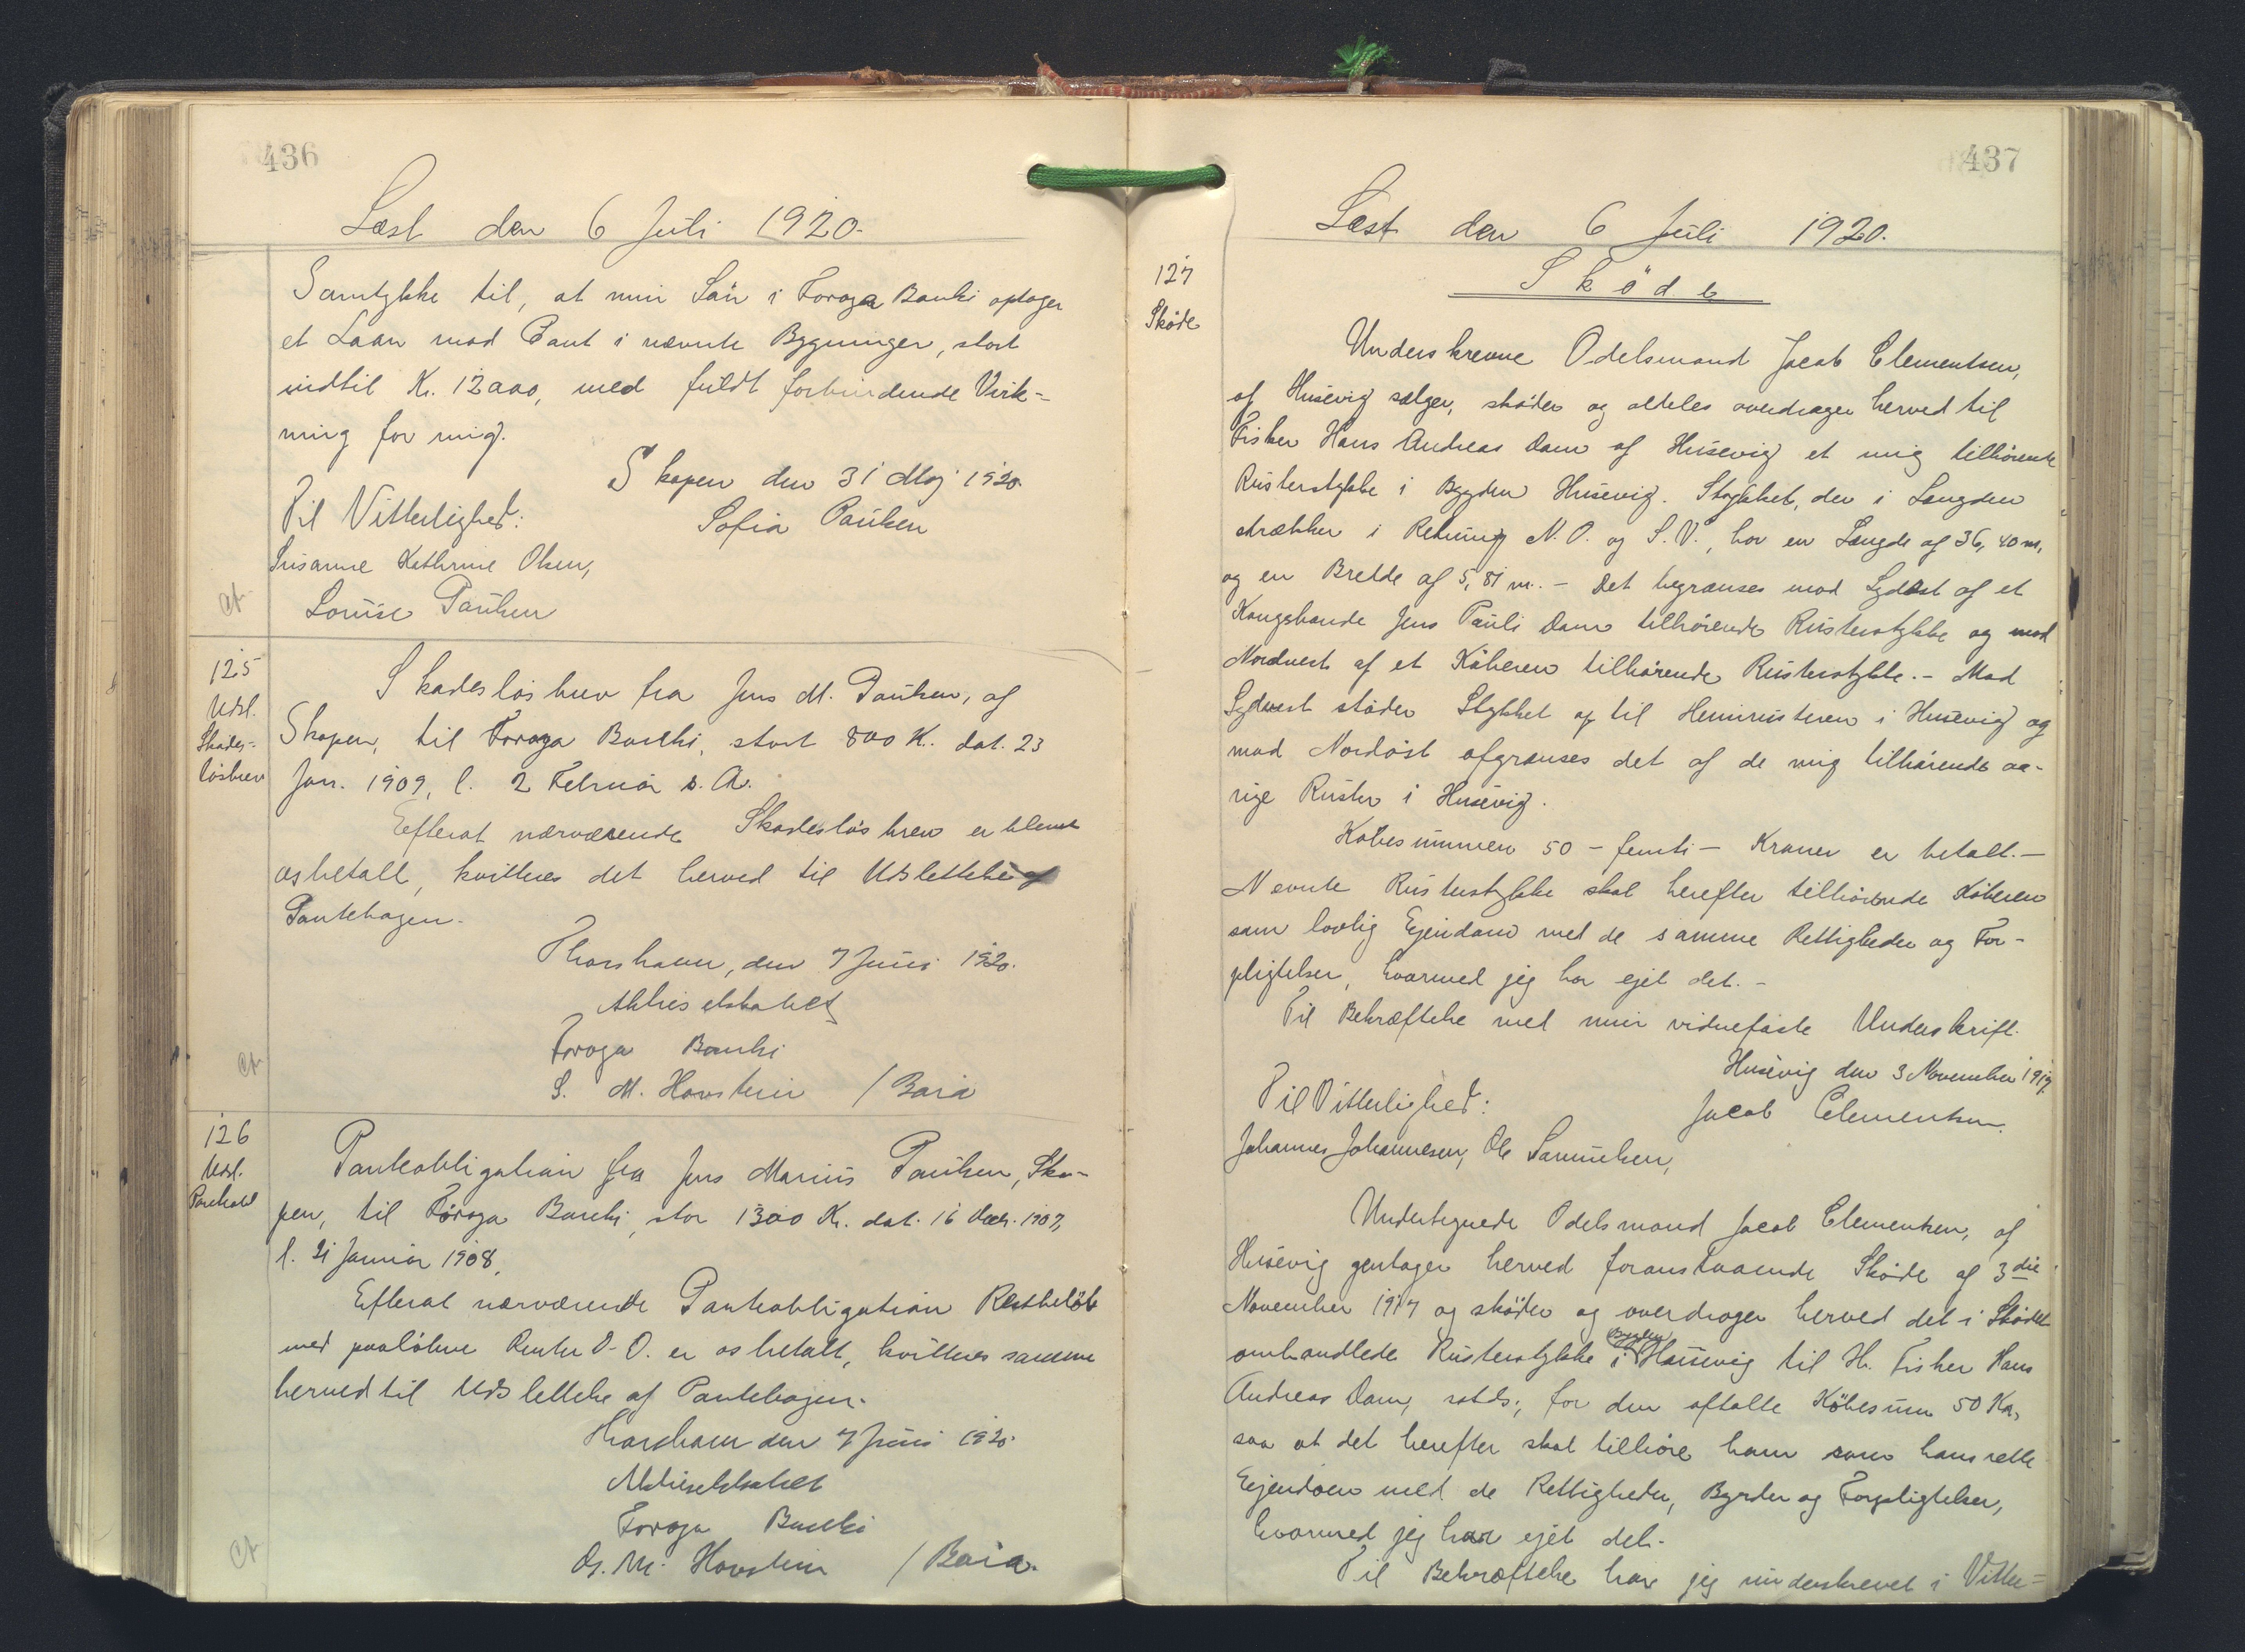 436
Læst den 6 Juli 1920.
Samtykke til, at min Sön i Foroya Banki optager
et Laan mod Pant i nævnte Bygninger, stort
indtil Kr. 12000, med fuldt forbindende Virk-
ning for mig.
Skopen den 31 Maj 1920.
Til Vitterlighed:
Sofia Paulsen
Susanne Kathrine Olsen,
Louise Paulsen
125
Udsl.
Skades-
lösbrev
Skadeslösbrev fra Jens M. Paulsen, af
Skopen, til Foroya Banki, stort 800 K. dat. 23
Jan. 1909, l. 2 Februar s. A.
Efterat nærværende Skadeslösbrev er blevet
os betalt, kvitteres det herved til Udslettelse af
Pantebogen.
Thorshavn, den 7 Juni 1920.
Aktieselskabet
Foroya Banki
S. M. Hovstein / Baia
126
Udsl.
Panteobl
Panteobligation fra Jens Marius Paulsen, Sko-
pen, til Föroya Banki, stor 1300 Kr. dat. 16 Dec. 1907,
l. 21 Januar 1908.
Efterat nærværende Panteobligation Restbelöb
med paalöbne Renter O-O. er os betalt, kvitteres samme
herved til Udslettelse af Pantebogen.
Thorshavn den 7 Juni 1920.
Aktieselskabet
Foroya Banki
M. Hovstein / Baia.
437
Læst den 6 Juli 1920.
127
Sköde
Sköde
Underskrevne Odelsmand Jacob Clementsen,
af Husevig sælger, sköder og aldeles overdrager herved til
Fisker Hans Andreas Dam af Husevig et mig tilhörende
Rusterstykke i Bygden Husevig. Stykket, der i Længden
strækker i Retning N.O. og S.V., har en Længde af 36,40 m,
og en Bredde af 5,81 m. - Det begrænses mod Sydöst af et
Kongsbonde Jens Pauli Dam tilhörende Rusterstykke og mod
Nordvest af et Köberen tilhörende Rusterstykke. - Mod
Sydvest stöder Stykket op til Heimrusteren i Husevig og
mod Nordöst afgrænses det af de mig tilhörende öv-
rige Ruster i Husevig.
Köbesummen 50 - femti - Kroner er betalt. -
Nævnte Rusterstykke skal herefter tilhörende Köberen
som lovlig Ejendom med de samme Rettigheder og For-
pligtelser, hvormed jeg har ejet det. -
Til Bekræftelse med min vidnefaste Underskrift.
Husevig den 3 November 1917
Til Vitterlighed:
Jacob Clementsen.
Johannes Johannesen, Ole Samuelsen,
Undertegnede Odelsmand Jacob Clementsen, af
Husevig gentager herved foranstaaende Sköde af 3die
November 1917 og sköder og overdrager herved det i Sködet
omhandlede Rusterstykke i Bygden Husevig til Hr. Fisker Hans
Andreas Dam, sstds., for den aftalte Köbesum 50 Kr.,
saa at det herefter skal tilhöre ham som hans rette
Ejendom med de Rettigheder, Byrder og Forpligtelser,
hvormed jeg har ejet det.
Til Bekræftelse har jeg underskrevet i Vitter-